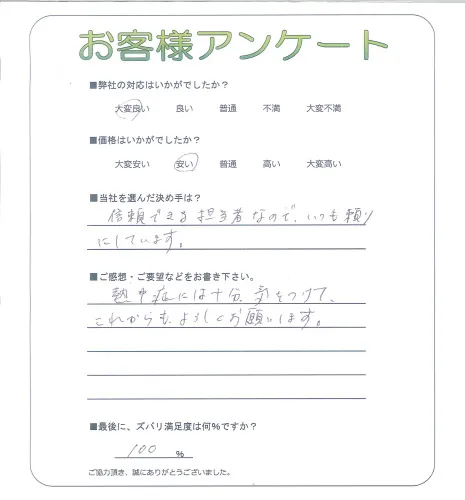 お客様アンケート
■弊社の対応はいかがでしたか？
大変良い 良い 普通 不満 大変不満
■価格はいかがでしたか？
大変安い 安い 普通 高い 大変高い
■当社を選んだ決め手は？
信頼できる担当者なので、いつも頼り
にしています。
■ご感想・ご要望などをお書き下さい。
熱中症には十分、気をつけて、
これからも、よろしくお願いします。
■最後に、ズバリ満足度は何％ですか？
100 ％
ご協力頂き、誠にありがとうございました。